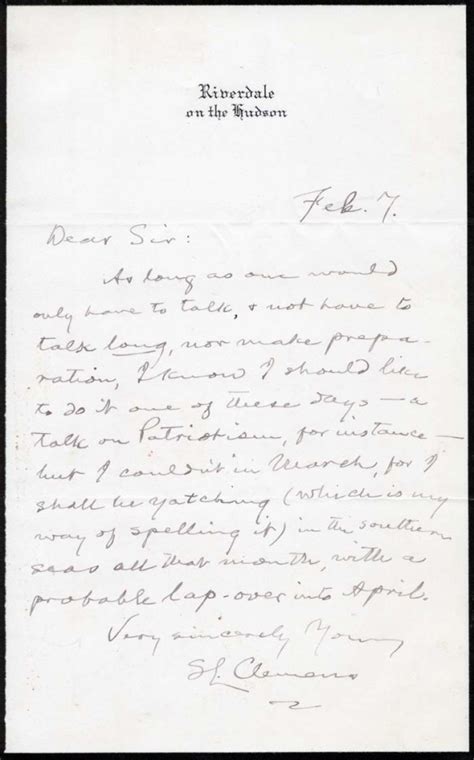 Riverdale
on the Hudson
Feb. 7.
Dear Sir:
As long as one would
only have to talk, & not have to
talk long, nor make prepa-
ration, I know I should like
to do it one of these days — a
talk on Patriotism, for instance —
but I couldn't in March, for I
shall be yatching (which is my
way of spelling it) in the southern
seas all that month, with a
probable lap-over into April.
Very sincerely Yours
SL. Clemens